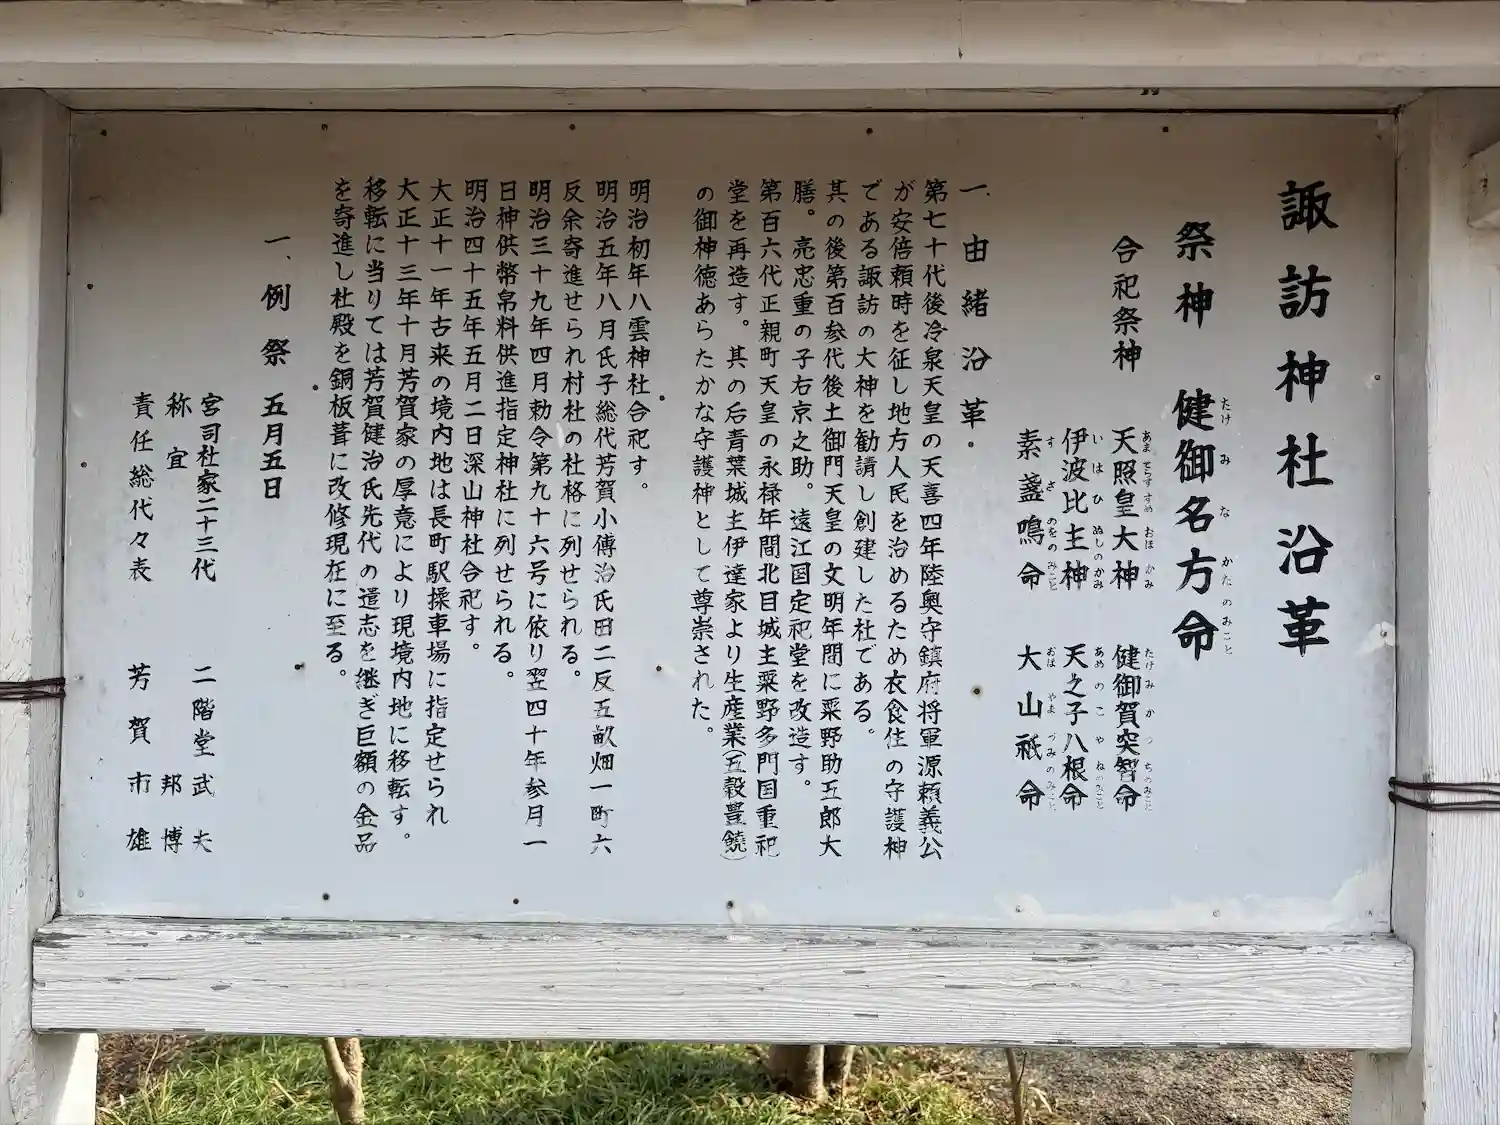 諏訪神社沿革
祭神 健御名方命
たけ み な かた のみこと
合祀祭神
天照皇大神 健御賀突智命
あま てらすすめ おほ かみ たけ み か つ ちのみこと
伊波比主神 天之子八根命
い は ひ ぬしのかみ あめ の こ や ねのみこと
素盞鳴命 大山祇命
す さ のをの みこと おほ やま づみの みこと
一、由緒沿革
第七十代後冷泉天皇の天喜四年陸奥守鎮府将軍源頼義公
が安倍頼時を征し地方人民を治めるため衣食住の守護神
である諏訪の大神を勧請し創建した社である。
其の後第百参代後土御門天皇の文明年間に粟野助五郎大
膳。亮忠重の子右京之助。遠江国定祀堂を改造す。
第百六代正親町天皇の永禄年間北目城主粟野多門国重祀
堂を再造す。其の后青葉城主伊達家より生産業(五穀豊饒)
の御神徳あらたかな守護神として尊崇された。
明治初年八雲神社合祀す。
明治五年八月氏子総代芳賀小傳治氏田二反五畝畑一町六
反余寄進せられ村社の社格に列せられる。
明治三十九年四月勅令第九十六号に依り翌四十年参月一
日神供幣帛料供進指定神社に列せられる。
明治四十五年五月二日深山神社合祀す。
大正十一年古来の境内地は長町駅操車場に指定せられ
大正十三年十月芳賀家の厚意により現境内地に移転す。
移転に当りては芳賀健治氏先代の遺志を継ぎ巨額の金品
を寄進し社殿を銅板葺に改修現在に至る。
一、例祭 五月五日
宮司社家二十三代 二階堂武夫
称宜 邦博
責任総代々表 芳賀市雄